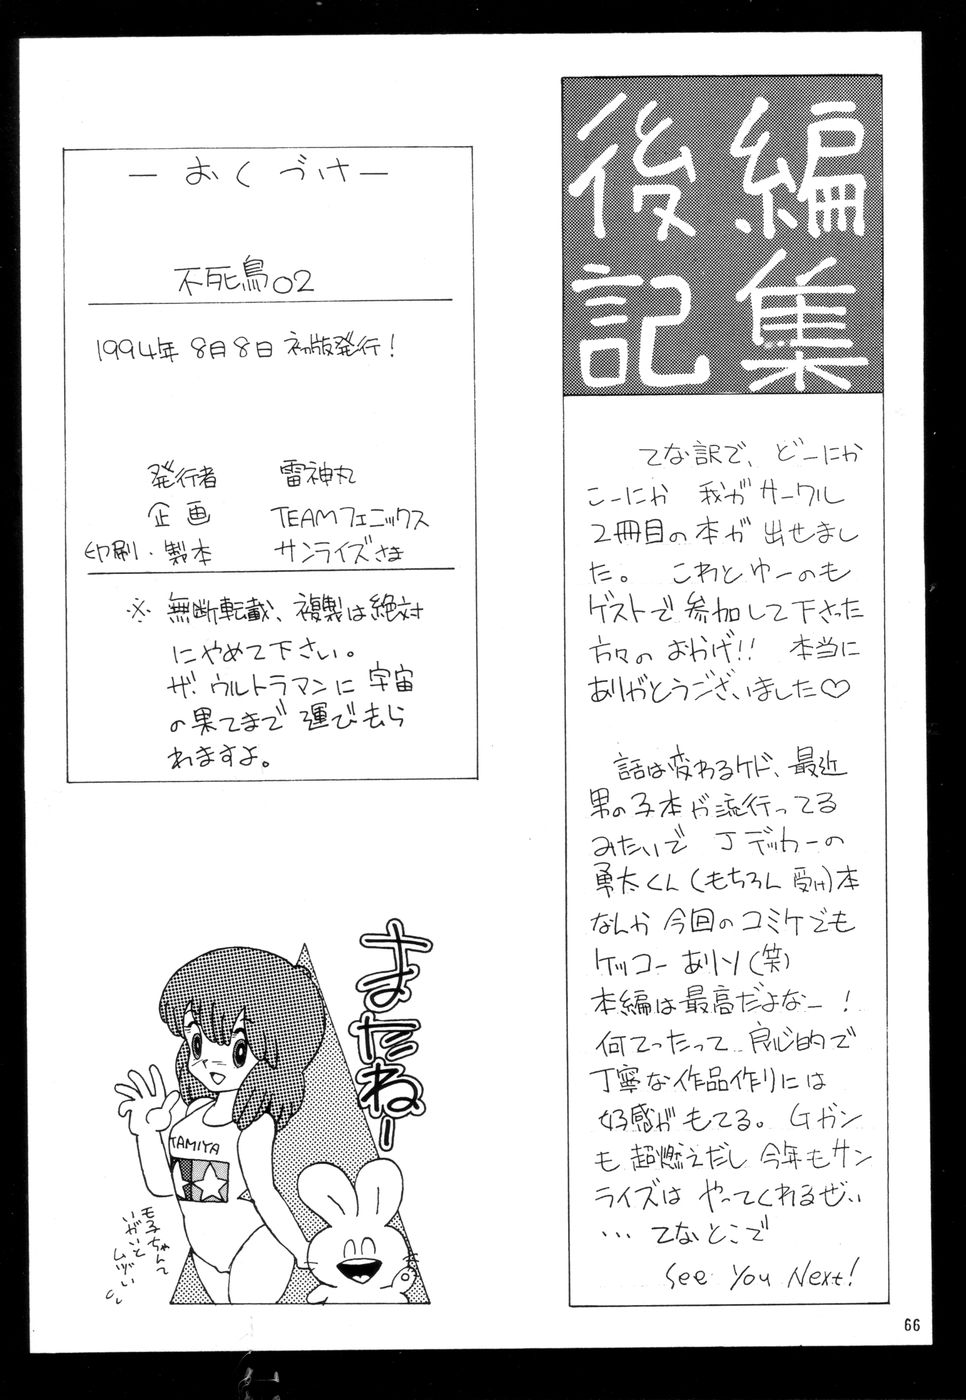 編集
後記
てな訳で、どーにか
こーにか 我がサークル
2冊目の本が 出せまし
た。 これとゆーのも
ゲストで参加して下さった
方々の おかげ!! 本当に
ありがとうございました♡
話は変わるケド、最近
男の子本が流行ってる
みたいで Jデッカーの
勇太くん(もちろん 受け)本
なんか 今回のコミケでも
ケッコー ありソ(笑)
本編は最高だよなー!
何てったって 良心的で
丁寧な作品作りには
好感がもてる。 Gガン
も 超燃えだし 今年もサン
ライズは やってくれるぜい
… てなとこで
See You Next!
－おくづけ－
不死鳥02
1994年 8月8日 初版発行!
発行者 雷神丸
企画 TEAMフェニックス
印刷・製本 サンライズさま
※ 無断転載、複製は絶対
にやめて下さい。
ザ・ウルトラマンに 宇宙
の果てまで 運び去ら
れますよ。
またねー
TAMIYA
モ子ちゃんて
いがいと
ムヅい
66